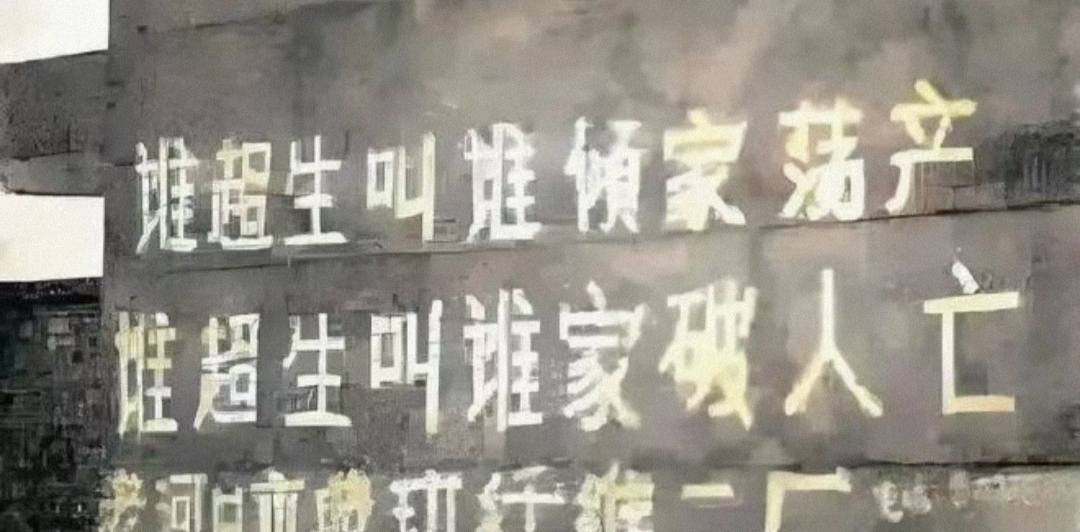 谁超生叫谁倾家荡产
谁超生叫谁家破人亡